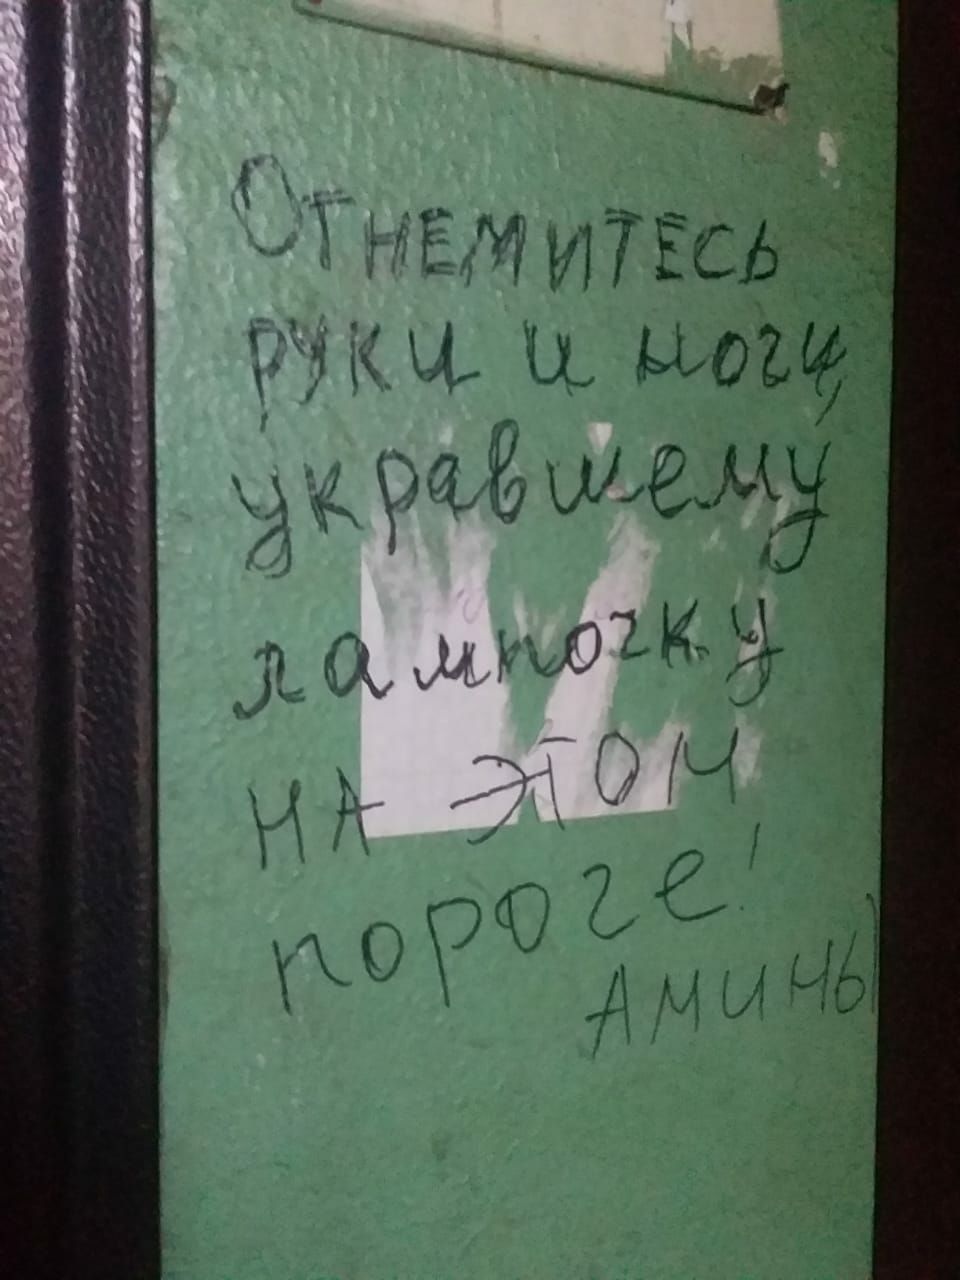 Отнемитесь
руки и ноги,
укравшему
лампочку
на этом
пороге!
Амины